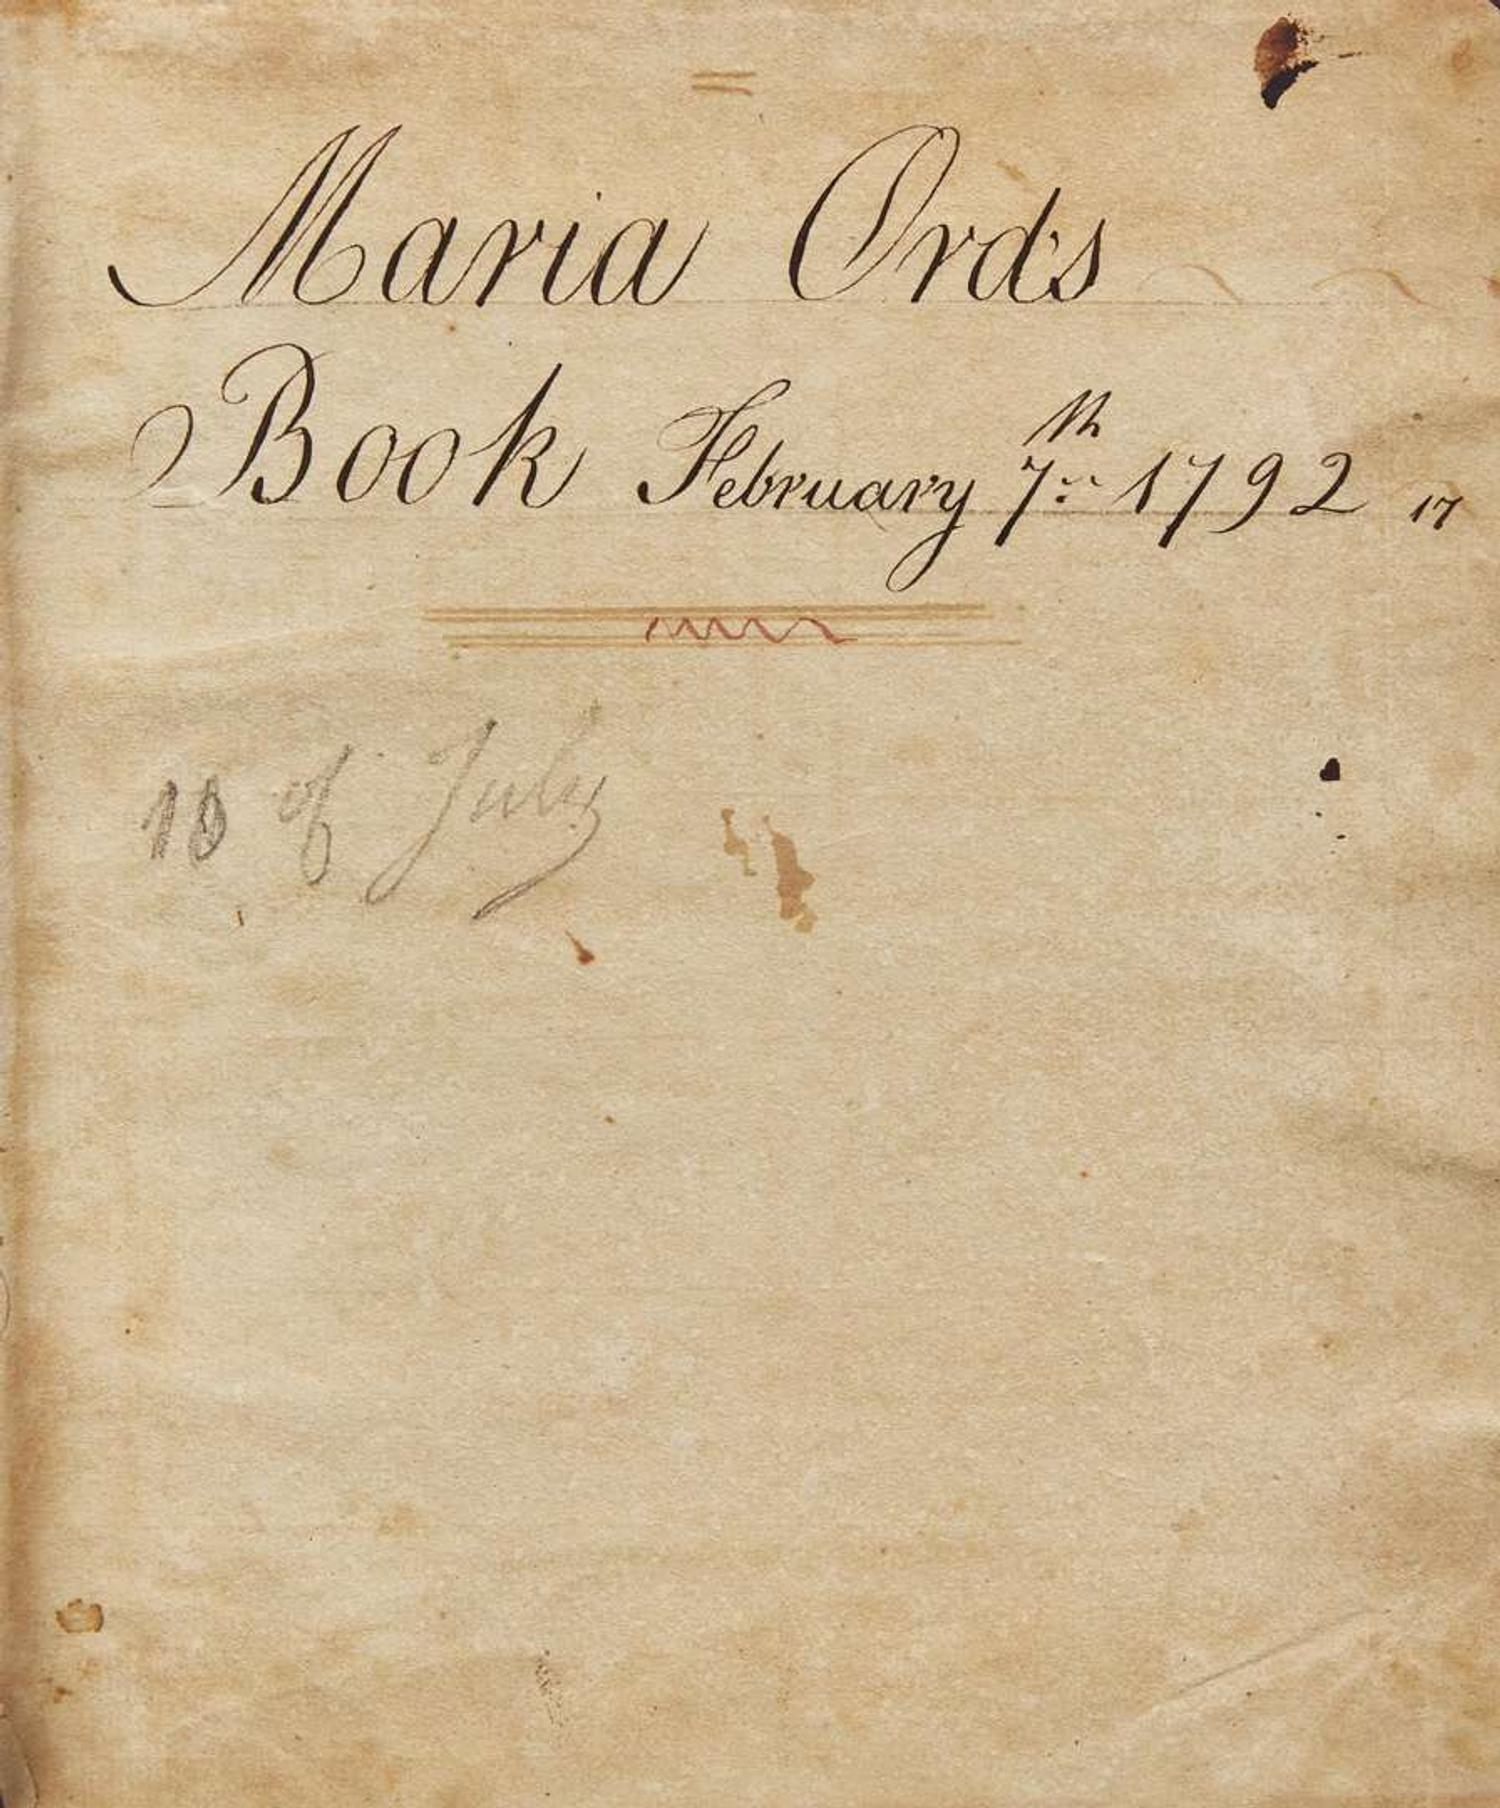 Maria Ord's
Book February 7th 1792 17
10 of July